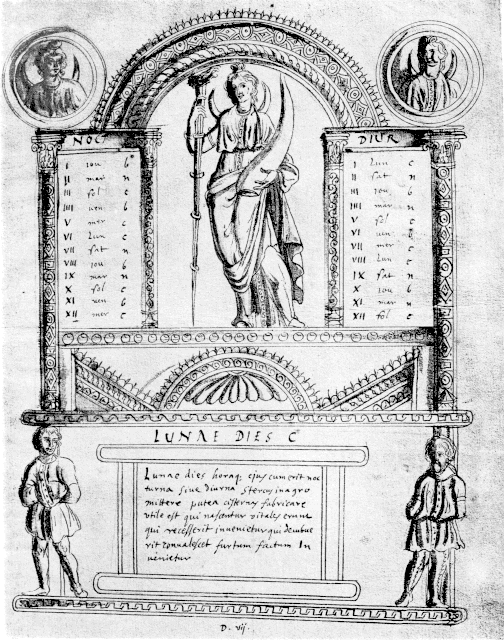 NOC
I iou b
II mar n
III sol c
IIII uen b
V mer c
VI Lun c
VII sat n
VIII iou b
IX mar n
X sol c
XI uen b
XII mer c
DIUR
I Lun c
II sat n
III iou b
IIII mar n
V sol c
VI uen b
VII mer c
VIII Lun c
IX sat n
X iou b
XI mar n
XII sol c
LUNAE DIES C
Lunae dies horaq; ejus cum erit noc
turna siue diurna stercus in agro
mittere putea cisternas fabricare
utile est qui nascentur uitales erunt
qui recesserit invenietur qui decubue
rit conualescet furtum factum In
uenietur
D. vij.